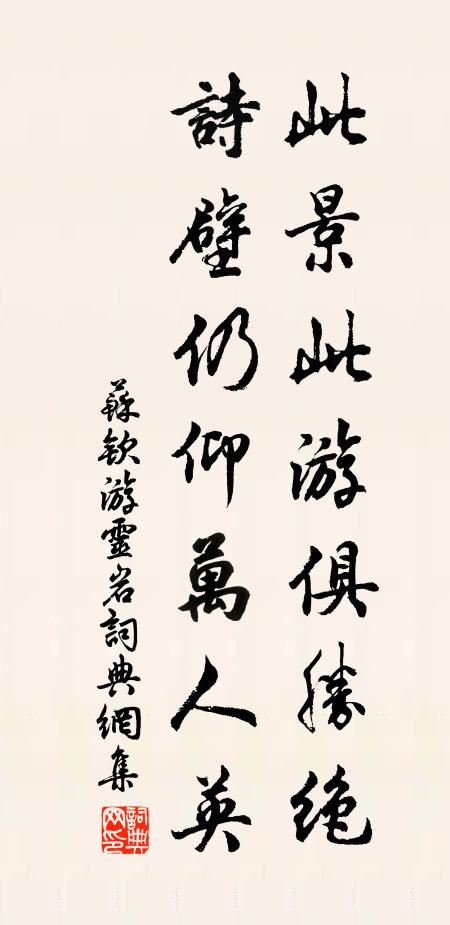 此景此游俱勝絶
詩壁仍仰萬人英
蘇欽游靈岩詞典網集
詞典
网印